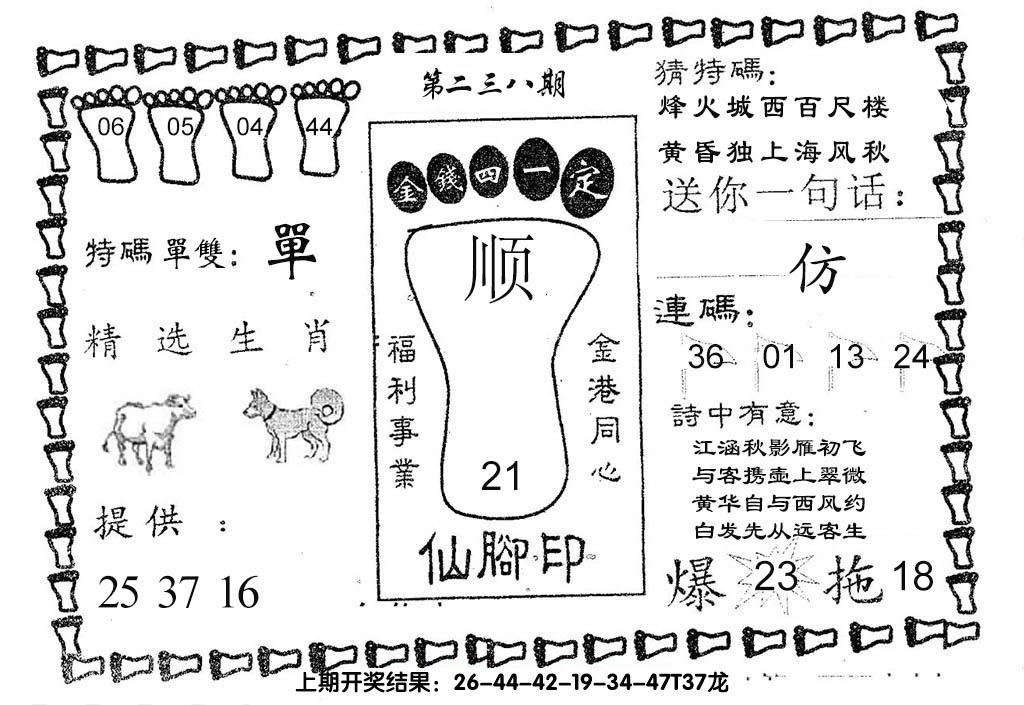 第二三八期
06 05 04 44
特碼單雙：單
精选生肖
提供：
25 37 16
金錢四一定
顺
福利事業
金港同心
21
仙腳印
猜特碼：
烽火城西百尺楼
黄昏独上海风秋
送你一句话：
仿
連碼：
36 01 13 24
詩中有意：
江涵秋影雁初飞
与客携壶上翠微
黄华自与西风约
白发先从远客生
爆 23 拖 18
上期开奖结果：26-44-42-19-34-47T37龙